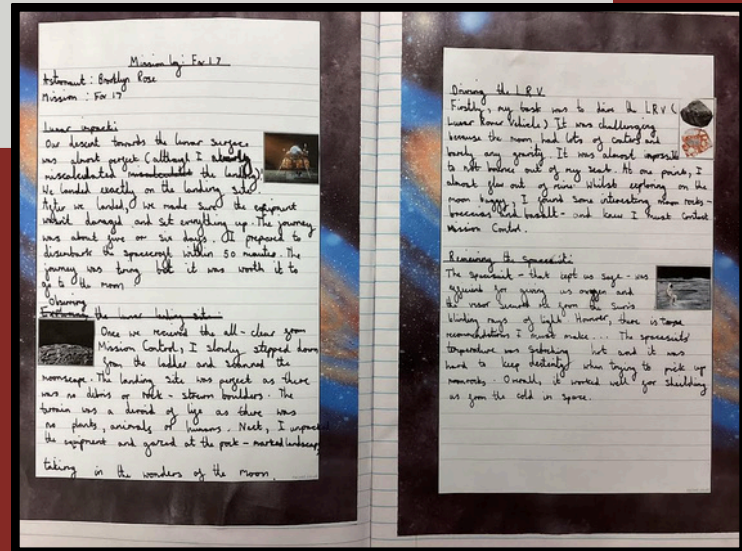 Mission log: Fox 17
Astronaut: Brooklyn Rose
Mission: Fox 17
Lunar impact:
Our descent towards the lunar surface
was almost perfect (although I
miscalculated the landing)
We landed exactly on the landing site.
After we landed, we made sure the equipment
wasn't damaged and set everything up. The journey
was about five or six days. I prepared to
disembark the spacecraft within 50 minutes. The
journey was tiring but it was worth it to
go to the moon
Observing
the lunar landing site
Once we received the all-clear from
Mission Control, I slowly stepped down
from the ladder and scanned the
moonscape. The landing site was perfect as there
was no debris or rock-strewn boulders. The
terrain was a devoid of life as there was
no plants, animals or humans. Next, I unpacked
the equipment and gazed at the pock-marked landscape,
taking in the wonders of the moon.
Driving the L R V
Firstly, my task was to drive the LRV (
Lunar Rover Vehicle) It was challenging
because the moon had lots of craters and
barely any gravity. It was almost impossible
to not bounce out of my seat. At one point, I
almost flew out of mine! Whilst exploring on the
moon buggy, I found some interesting moon rocks-
breccias and basalt- and knew I must contact
Mission Control.
Reviewing the spacesuit:
The spacesuit - that kept us safe - was
efficient for giving us oxygen and
the visor us from the sun's
blinding rays of light. However, there is
recommendations I must make... The spacesuits'
temperature was hot and it was
hard to keep dexterity when trying to pick up
moonrocks. Overall, it worked well for shielding
us from the cold in space.